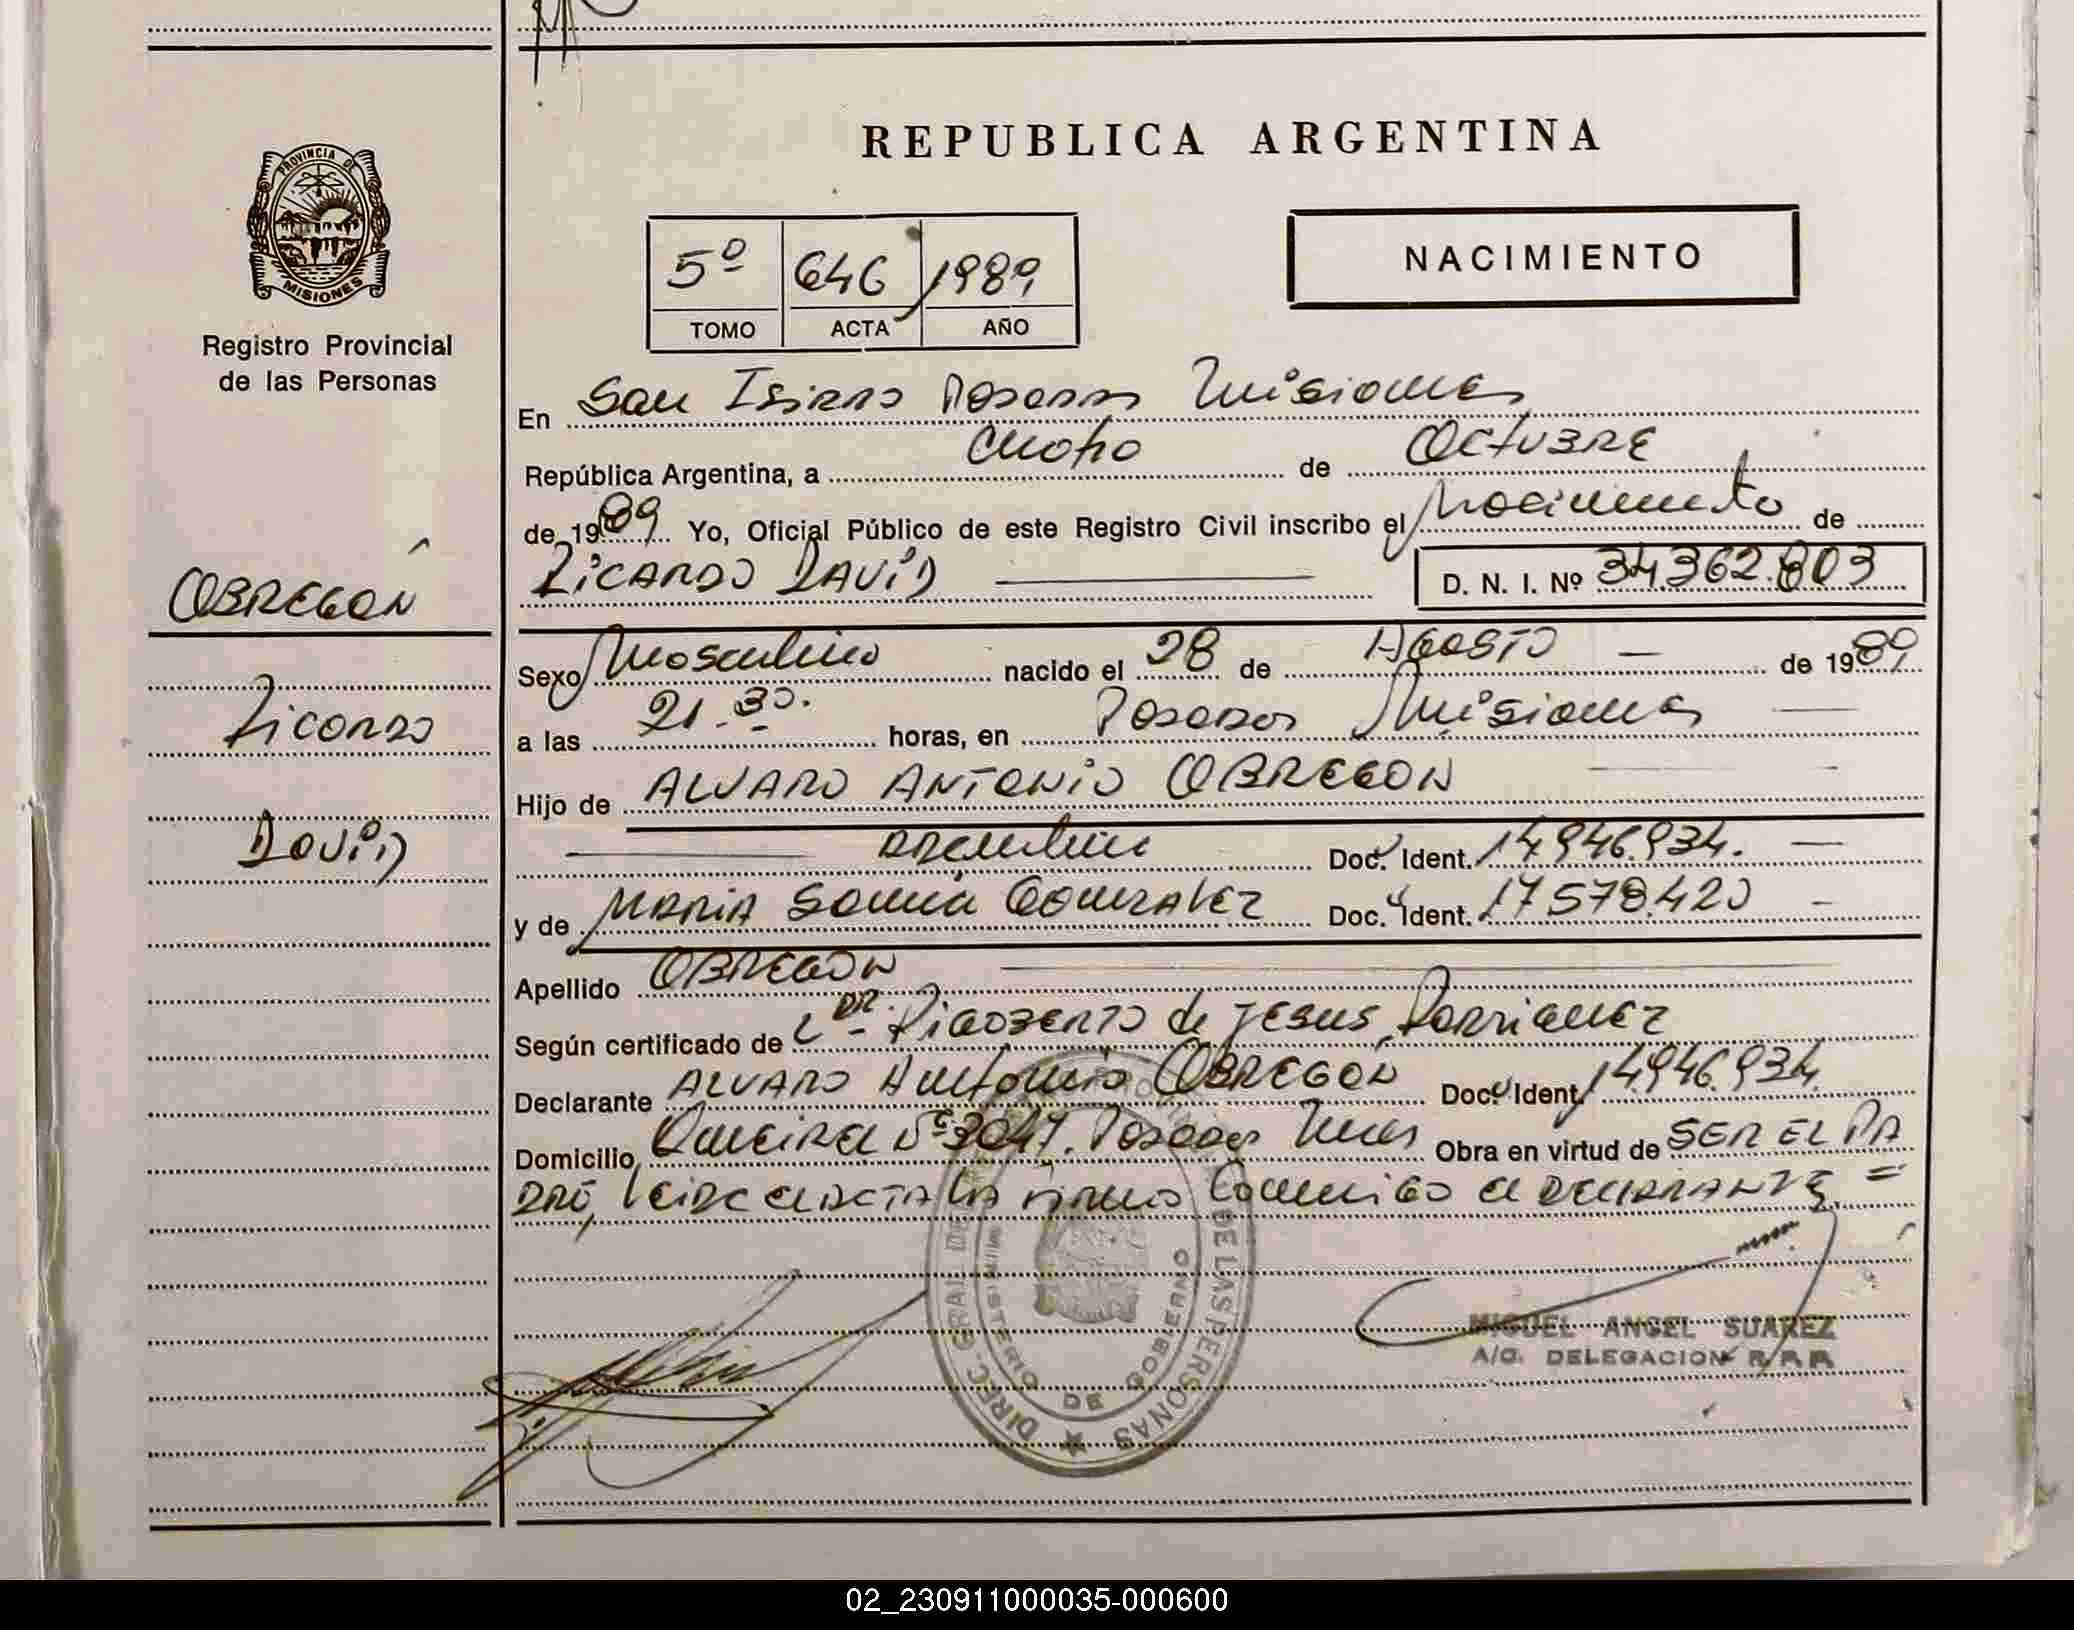 REPUBLICA ARGENTINA
PROVINCIA DE
MISIONES
Registro Provincial
de las Personas
NACIMIENTO
5º 646 1989
TOMO ACTA AÑO
En San Isidro Posadas Misiones
República Argentina, a cuatro de Octubre
de 1989 Yo, Oficial Público de este Registro Civil inscribo el Nacimiento de
RICARDO DAVID D. N. I. Nº 34.362.803
OBREGON
Ricardo
David
Sexo Masculino nacido el 28 de AGOSTO de 1989
a las 21.30. horas, en Posadas Misiones
Hijo de ALVARO ANTONIO OBREGON
argentino Doc. Ident. 14.946.934.
y de MARIA Sonia Gonzalez Doc. Ident. 17578.420
Apellido OBREGON
Según certificado de DR. Rigoberto de Jesus Rodriguez
Declarante ALVARO Antonio OBREGON Doc. Ident. 14.946.934
Domicilio Nº 3047. Posadas Mnes Obra en virtud de SER EL PA
DRE, Leida el acta la firma conmigo el DECLARANTE. =
DIREC. GRAL DE DE LAS PERSONAS
MINISTERIO DE GOBIERNO
MIGUEL ANGEL SUAREZ
A/C. DELEGACION R.P.P.
02_230911000035-000600